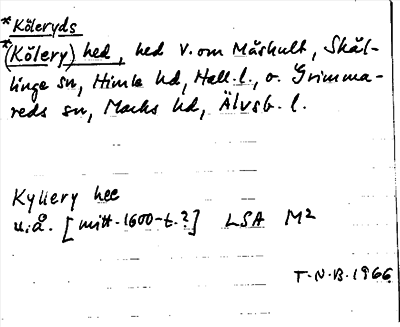 *Köleryds
*(Kölery) hed, hed v. om Måskult, Skäl-
linge sn, Himle hd, Hall. l., o. Grimma-
reds sn, Marks hd, Älvsb. l.
Kyllery hee
u.å. [mitt. 1600-t.?] LSA M²
T.N.B. 1966